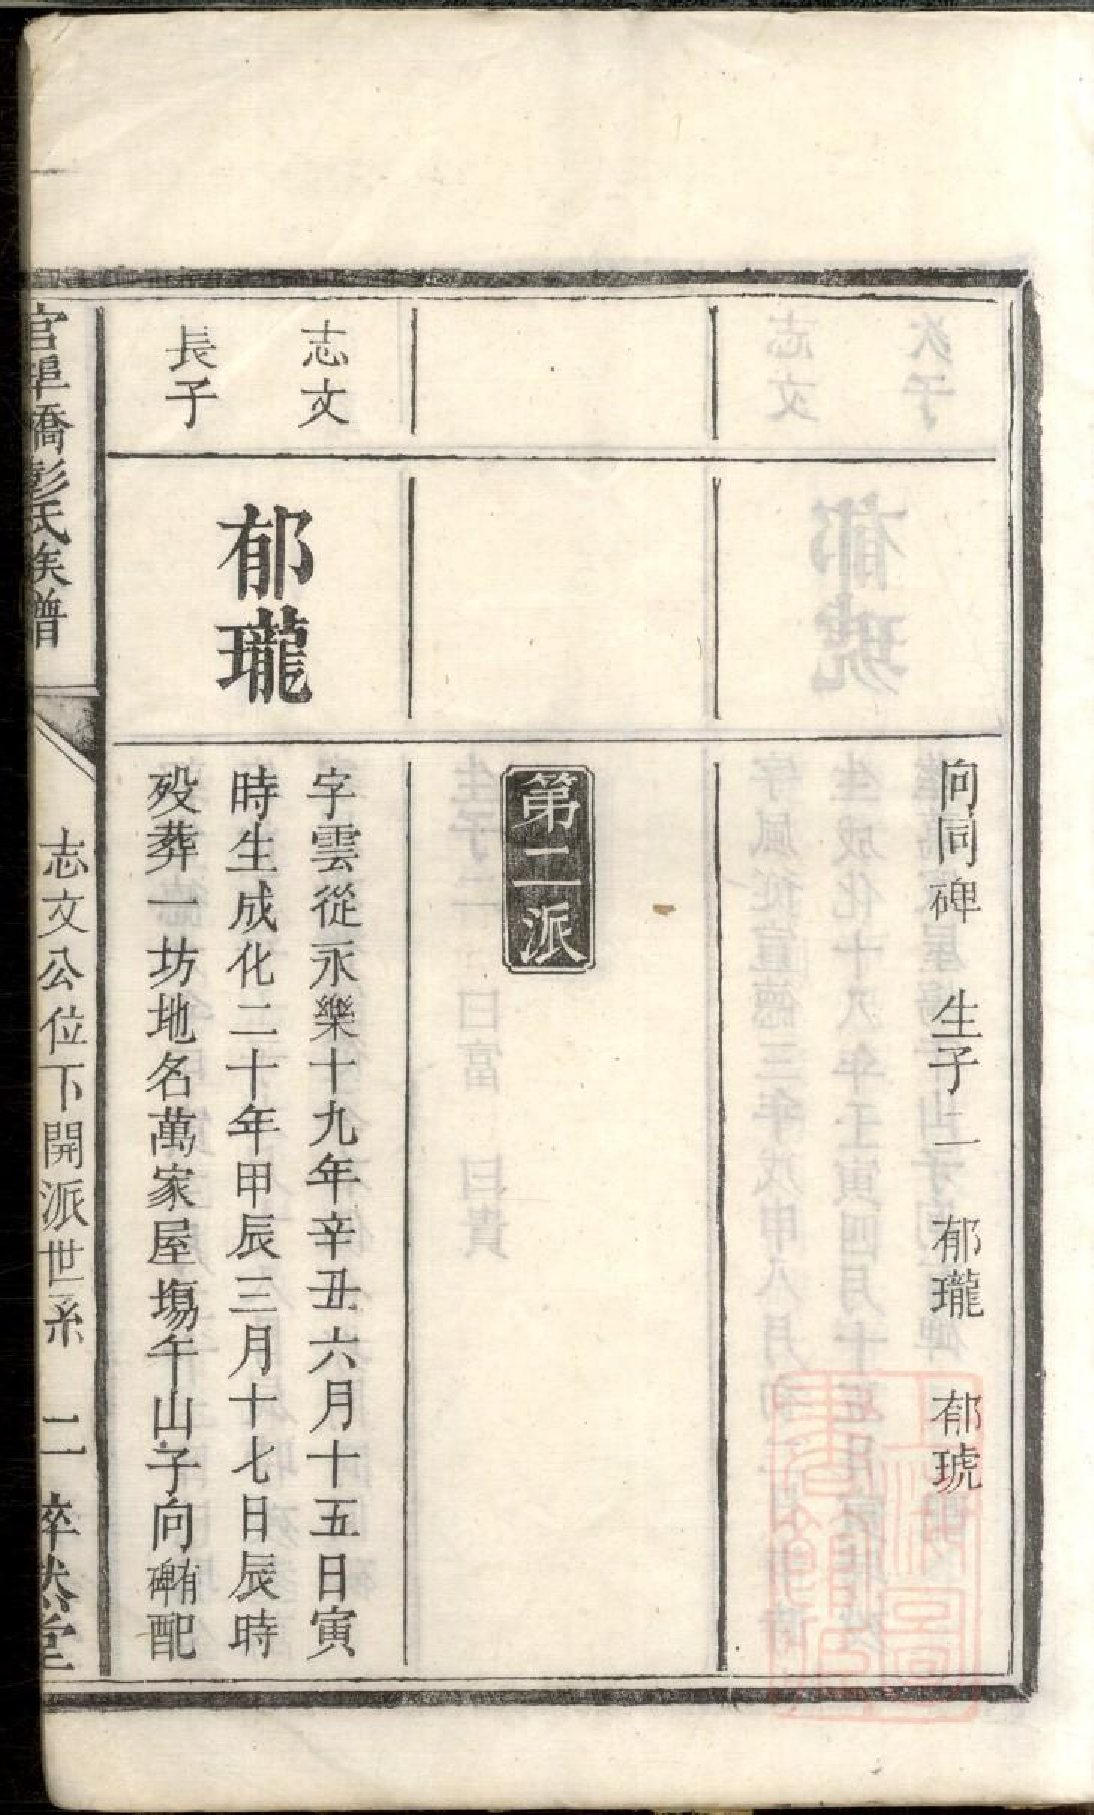 向同碑　生子二　郁瓏　郁琥
第二派
志文
長子
郁瓏
字雲從永樂十九年辛丑六月十五日寅
時生成化二十年甲辰三月十七日辰時
歿葬一坊地名萬家屋塲午山子向有碑配
官埠橋彭氏族譜
志文公位下開派世系　二　睟然堂